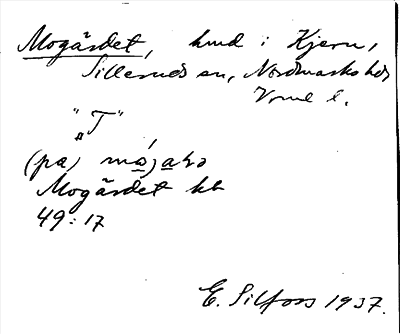 Mogärdet, hmd i Kjern,
Silleruds sn, Nordmarks hds
Vrml l.
"T"
(på)
Mogärdet kb
49:17
E. Silfors 1937.